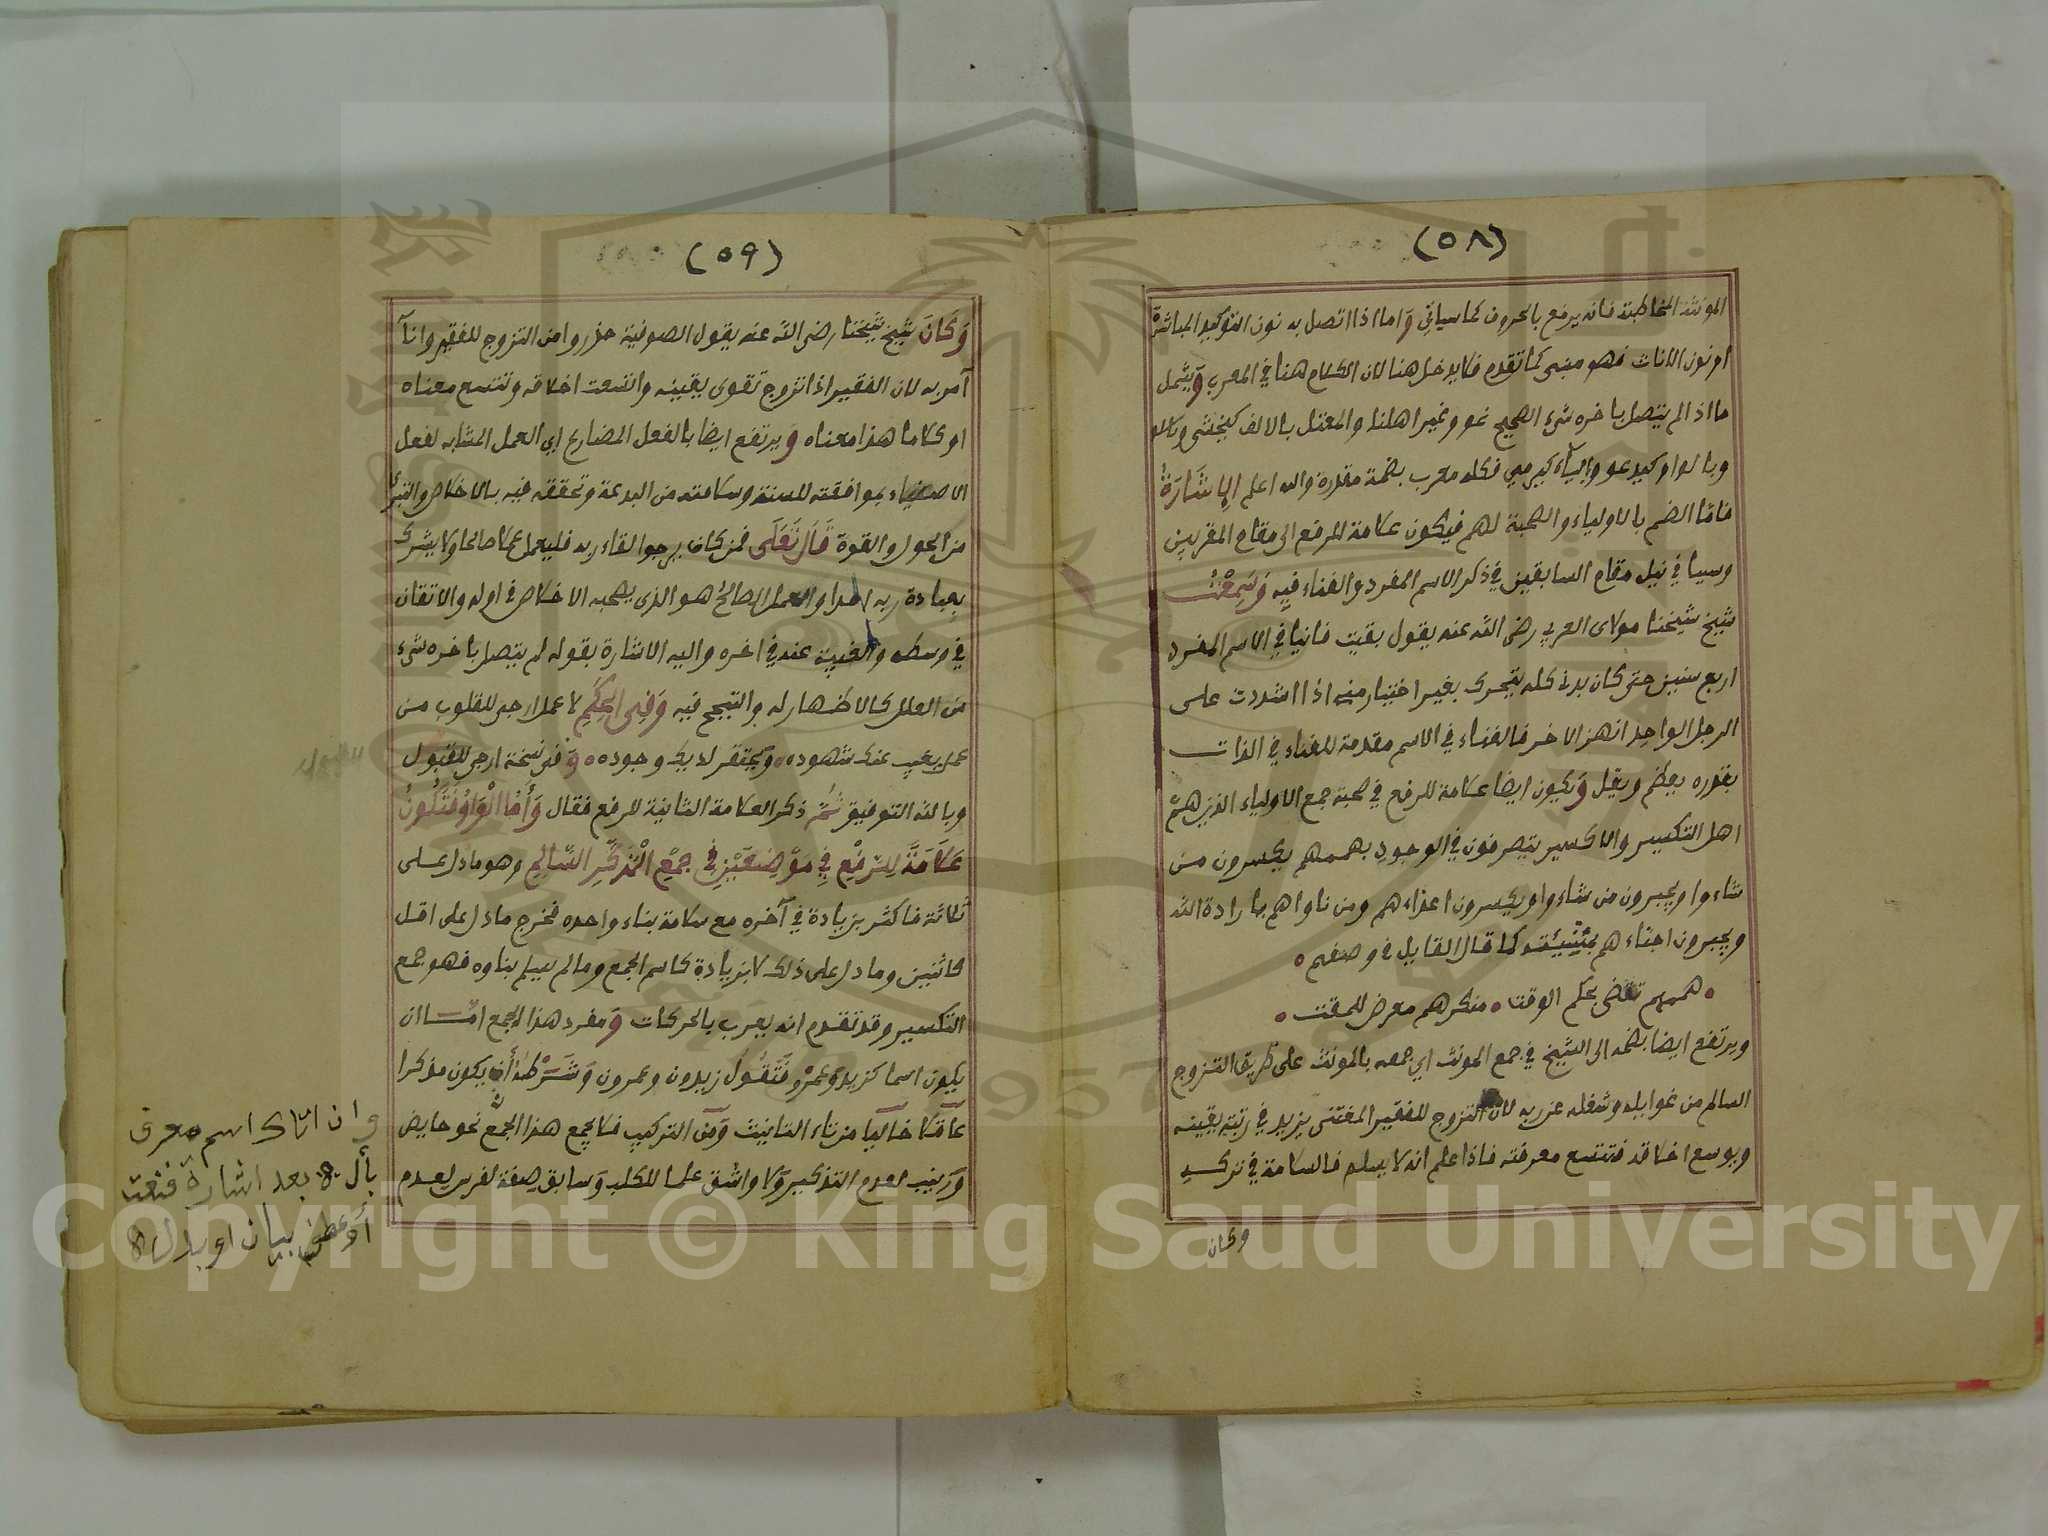 (٥٨)
المونثة المخاطبة فانه يرفع بالحروف كما سياتي واما اذا اتصل به نون التوكيد المباشرة
او نون الاناث فهو مبنى كما تقدم فلا يدخل هنا لان الكلام هنا في المعرب ويشمل
ما اذا لم يتصل باخره شيء الصحيح نحو ونمير اهلنا والمعتل بالالف كيخشى
وبالواو كيدعو والياء كيرمي فكله معرب بضمة مقدرة والله اعلم الإشَارَةُ
فامّا الضم بالاولياء والصحبة لهم فيكون علامة للرفع الى مقام المقربين
وسببا في نيل مقام السابقين في ذكر الاسم المفرد والفناء فيه وَسَمِعْتُ
شيخ شيخنا مولاى العربي رضى الله عنه يقول بقيت فانيا في الاسم المفرد
اربع سنين حتى كان بدنى كله يتحرك بغير اختيار منى اذا اشددت على
الرجل الواحد انهز الاخر فالفناء في الاسم مقدمة للفناء في الذات
بقدره يعظم ويقل وَيكون ايضا علامة للرفع في صحبة جمع الاولياء الذين همّ
اهل التكسير والاكسير يتصرفون في الوجود بهممهم يكسرون من
شاءوا ويجبرون من شاءوا ويكسرون اعداءهم ومن ناواهم بارادة الله
ويجبرون احباءهم بمشيئته كما قال القايل في وصفهم
هممهم تقضى بحكم الوقت منكرهم معرض للمقت
ويرتفع ايضا بضمه الى الشيخ في جمع المونث اي جمعه بالمونث على طريق التزوج
السالم من غوايله وشغله عن ربه لان التزوج للفقير المغتنى يزيد في رتبة يقينه
ويوسع اخلاقه فتتسع معرفته فاذا علم انه لا يسلم فالسلامة في تركه
وكان
(٥٩)
وَكَانَ شيخ شيخنا رضى الله عنه يقول الصوفية حذروا من التزوج للفقير وانا
آمر به لان الفقير اذا تزوج تقوى يقينه واتسعت اخلاقه وتتسع معناه
او كلاما هذا معناه وَيرتفع ايضا بالفعل المضارع اي العمل المشابه لفعل
الاصفياء بموافقته للسنة وسلامته من البدعة وتحققه فيه بالاخلاص والتبرئ
من الحول والقوة قَالَ تَعَالَى فمن كان يرجوا لقاء ربه فليعمل عملا صالحا ولا يشرك
بعبادة ربه احدا والعمل الصالح هو الذي يصحبه الاخلاص في اوله والاتقان
في وسطه والغيبة عنه في اخره واليه الاشارة بقوله لم يتصل باخره شيء
من العلل كالاظهار له والتبجح فيه وَفِى الحِكَمِ لا عمل ارجى للقلوب من
عمل يغيب عنك شهوده ويحتقر لديك وجوده وفى نسخة ارجى للقبول
وبالله التوفيق ثُمَّ ذكر العلامة الثانية للرفع فقال وَأَمَّا الْوَاوُ فَتَكُونُ
عَلَامَةً لِلرَّفْعِ فِي مَوْضِعَيْنِ فِي جَمْعِ الْمُذَكَّرِ السَّالِمِ وهو ما دل على
ثلاثة فاكثر بزيادة في آخره مع سلامة بناء واحده فخرج ما دل على اقل
كاثنين وما دل على ذلك لا بزيادة كاسم الجمع وما لم يسلم بناوه فهو جمع
التكسير وقد تقدم انه يعرب بالحركات وَمفرد هذا الجمع امّا ان
يكون اسما كزيد وعمرو فَتَقُولُ زيدون وعمرون وَشَرْطه أن يكون مذكرا
عاقلا خاليا من تاء التانيث وَمن التركيب فلا يجمع هذا الجمع نحو حايض
وزينب لعدم التذكير وَلا واشق علما للكلب وَسابق صفة لفرس لعدم
وان اتاك اسم معرف
بأل بعد اشارة فنعت
أو عطف بيان او بدل